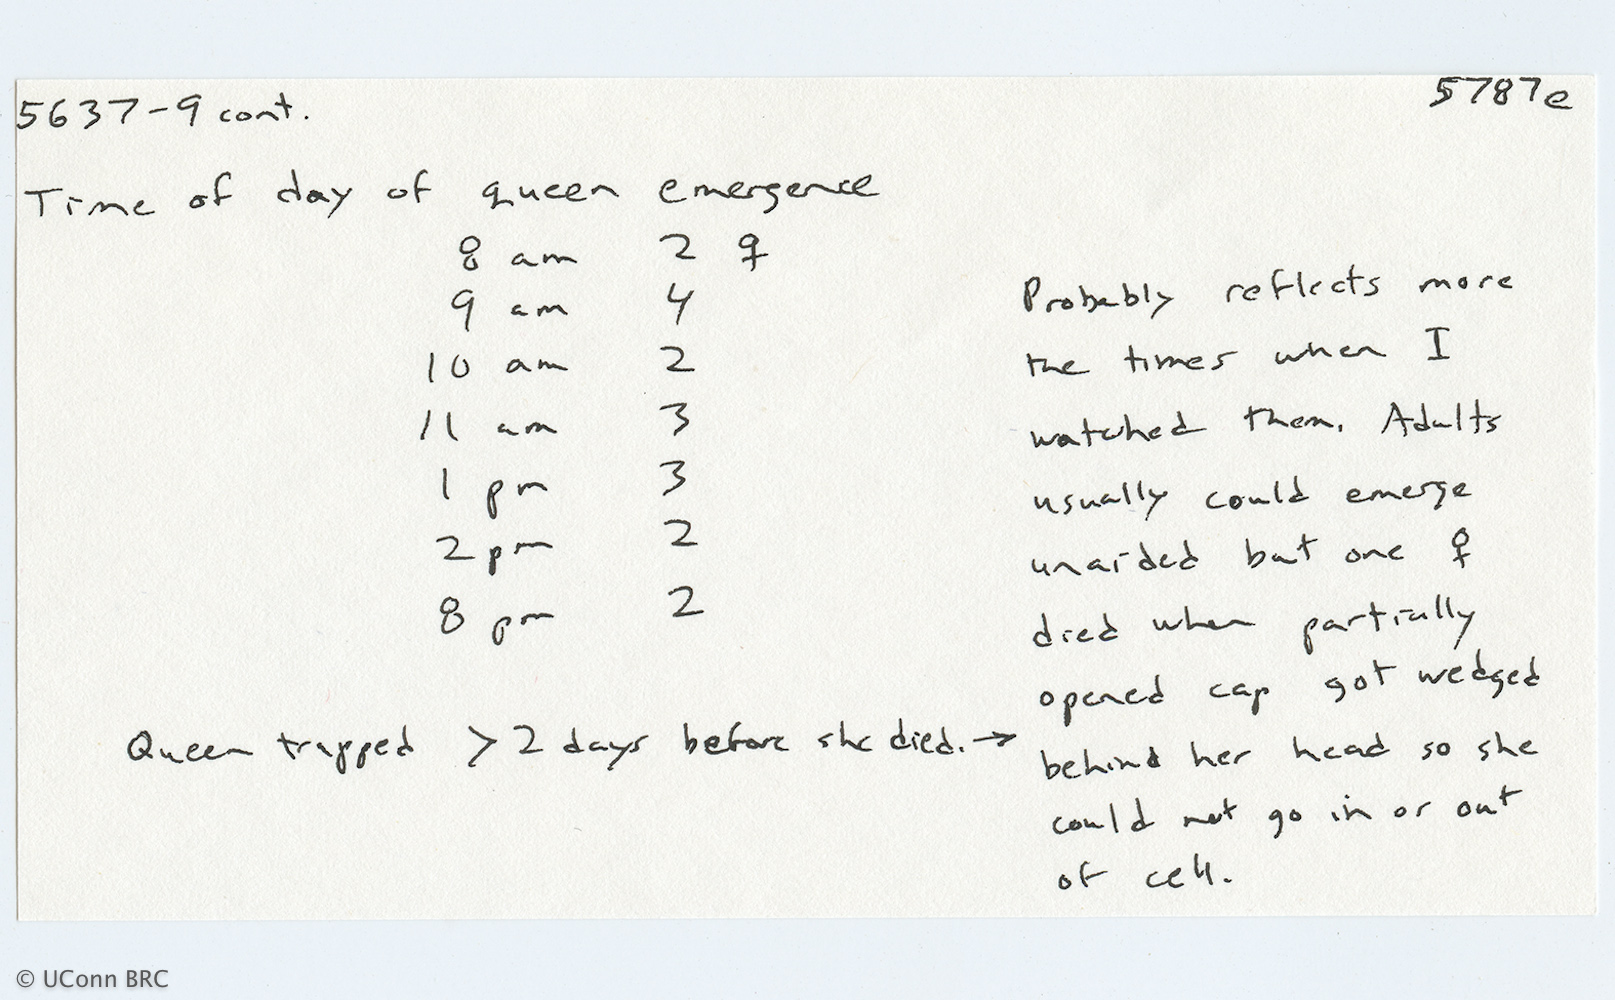 5637-9 cont.
5787e
Time of day of queen emergence
8 am 2 ♀
9 am 4
10 am 2
11 am 3
1 pm 3
2 pm 2
8 pm 2
Queen trapped > 2 days before she died. →
Probably reflects more
the times when I
watched them. Adults
usually could emerge
unaided but one ♀
died when partially
opened cap got wedged
behind her head so she
could not go in or out
of cell.
© UConn BRC